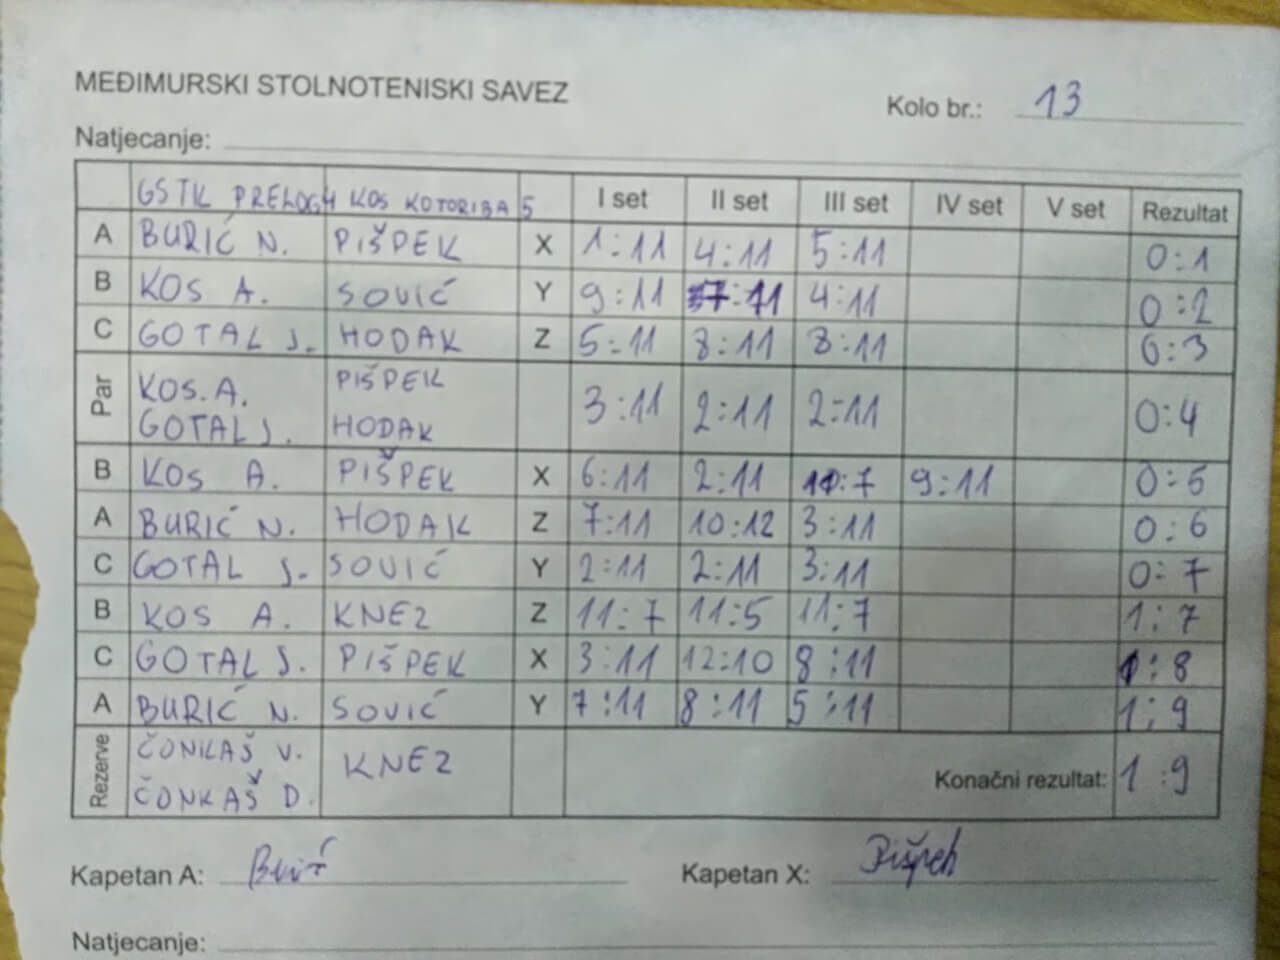 MEĐIMURSKI STOLNOTENISKI SAVEZ
Kolo br.: 13
Natjecanje:
GSTK PRELOG 4 KOS KOTORIBA 5 I set II set III set IV set V set Rezultat
A BURIĆ N. PIŠPEK X 1:11 4:11 5:11 0:1
B KOS A. SOVIĆ Y 9:11 7:11 4:11 0:2
C GOTAL J. HODAK Z 5:11 8:11 8:11 0:3
Par KOS. A. PIŠPEK 3:11 2:11 2:11 0:4
GOTAL J. HODAK
B KOS A. PIŠPEK X 6:11 2:11 11:7 9:11 0:5
A BURIĆ N. HODAK Z 7:11 10:12 3:11 0:6
C GOTAL J. SOVIĆ Y 2:11 2:11 3:11 0:7
B KOS A. KNEZ Z 11:7 11:5 11:7 1:7
C GOTAL J. PIŠPEK X 3:11 12:10 8:11 1:8
A BURIĆ N. SOVIĆ Y 7:11 8:11 5:11 1:9
Rezerve ČONKAŠ V. KNEZ Konačni rezultat: 1:9
ČONKAŠ D.
Kapetan A: Burić Kapetan X: Pišpek
Natjecanje: